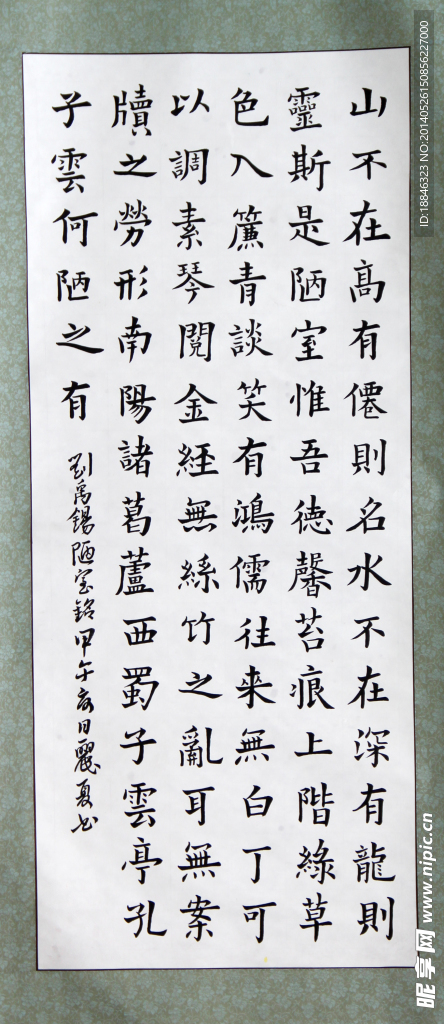 山不在髙有僊則名水不在深有龍則
靈斯是陋室惟吾德馨苔痕上階綠草
色入簾青談笑有鴻儒往來無白丁可
以調素琴閱金經無絲竹之亂耳無案
牘之勞形南陽諸葛蘆西蜀子雲亭孔
子雲何陋之有
劉禹錫陋室銘甲午日麗夏书
ID:18846323 NO:20140526150856227000
昵享网 www.nipic.cn